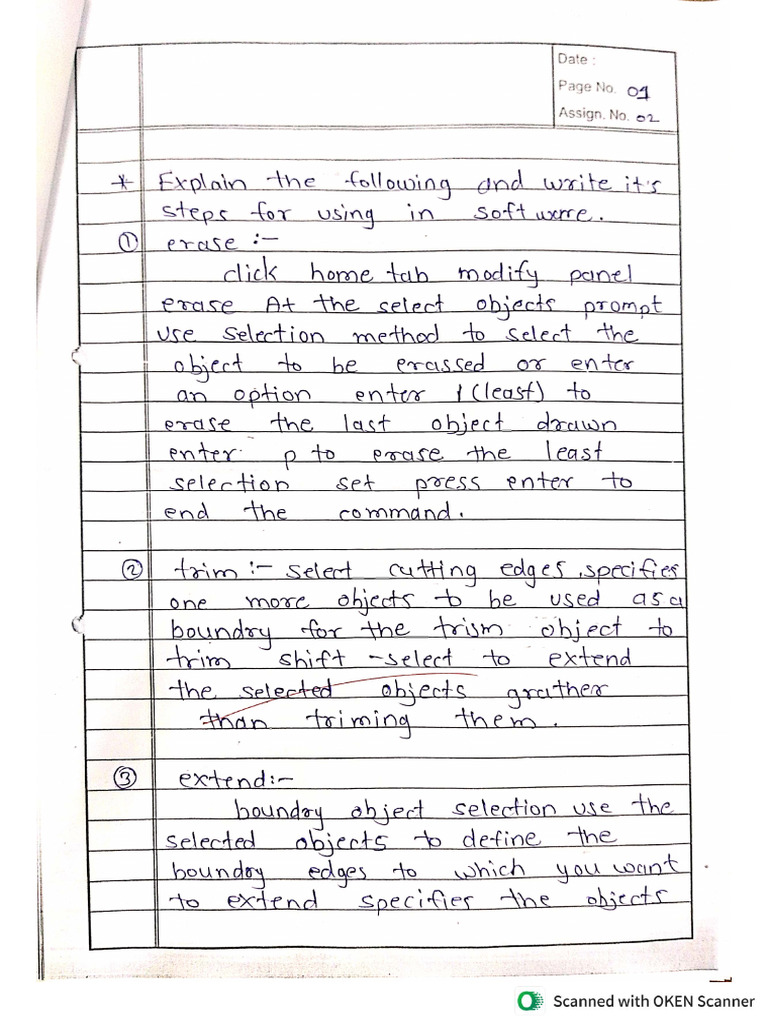 Date :
Page No. 01
Assign. No. 02
* Explain the following and write it's
steps for using in software.
① erase :-
click home tab modify panel
erase At the select objects prompt
use selection method to select the
object to be erassed or enter
an option enter l (least) to
erase the last object drawn
enter p to erase the least
selection set press enter to
end the command.
② trim :- select cutting edges, specifies
one more objects to be used as a
boundry for the trism object to
trim shift -select to extend
the selected objects grather
than triming them.
③ extend:-
boundry object selection use the
selected objects to define the
boundry edges to which you want
to extend specifies the objects
Scanned with OKEN Scanner